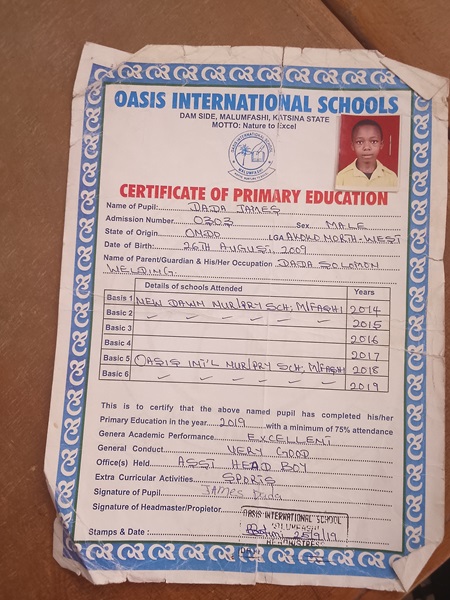 OASIS INTERNATIONAL SCHOOLS
DAM SIDE, MALUMFASHI, KATSINA STATE
MOTTO: Nature to Excel
CERTIFICATE OF PRIMARY EDUCATION
Name of Pupil: DADA JAMES
Admission Number 0303 Sex MALE
State of Origin ONDO LGA AKOKO NORTH-WEST
Date of Birth: 26TH AUGUST, 2009
Name of Parent/Guardian & His/Her Occupation DADA SOLOMON
WELDING.
Details of schools Attended Years
Basis 1 NEW DAWN NUR/PRY SCH, M/FASHI 2014
Basic 2 2015
Basic 3 2016
Basic 4 2017
Basic 5 OASIS INT'L NUR/PRY SCH, M/FASHI 2018
Basic 6 2019
This is to certify that the above named pupil has completed his/her
Primary Education in the year 2019 with a minimum of 75% attendance
Genera Academic Performance EXCELLENT
General Conduct VERY GOOD
Office(s) Held ASST HEAD BOY
Extra Curricular Activities SPORTS
Signature of Pupil James Dada
Signature of Headmaster/Propietor
OASIS INTERNATIONAL SCHOOL
MALUMFASHI
25/9/19
Stamps & Date :